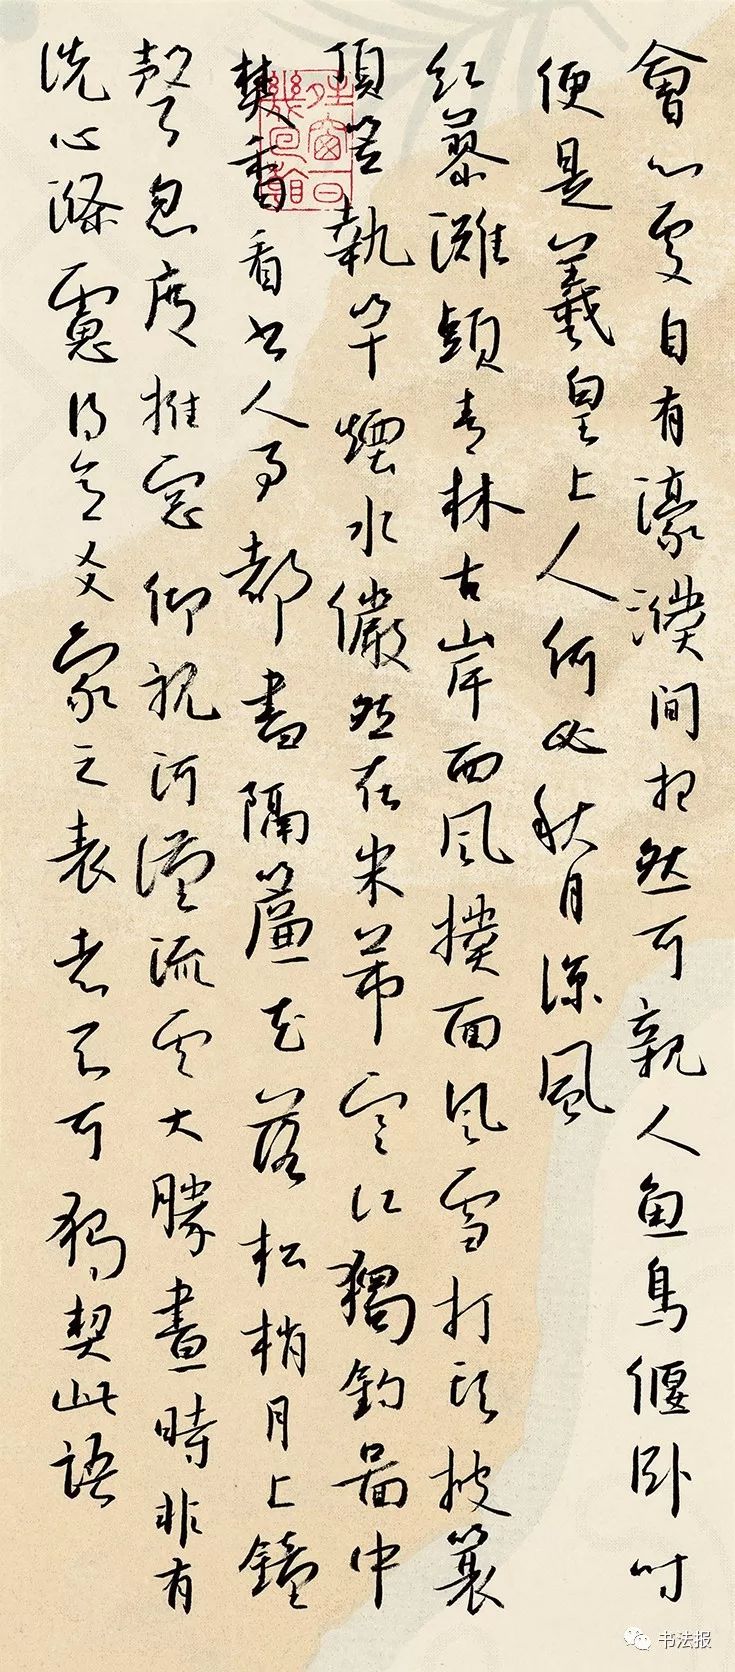 會心處自有濠濮間想然可親人魚鳥偃卧時
便是羲皇上人何必秋月涼風
紅蓼灘頭青林古岸西風撲面風雪打頭披蓑
頂笠執竿煙水儼然在米芾寒江獨釣圖中
焚香看書人事都盡隔簾花落松梢月上鐘
聲忽度推窗仰視河漢流雲大勝晝時非有
洗心滌慮得意爻象之表者不可獨契此語
书法报